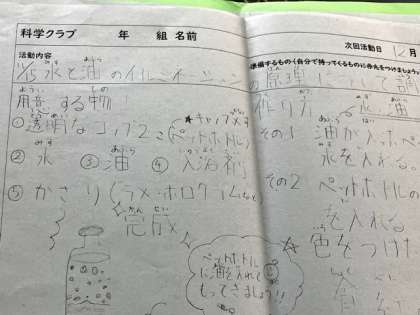 科学クラブ 年 組 名前
活動内容
11/15 水と油のイルミネーション
用意する物!
①透明なコップ2こ(ペットボトル)
②水 ③油 ④入浴剤
⑤かざり(ラメ・ホログラムなど
完成
ペットボトル
に油を入れて
もってきましょう!!
次回活動日 12月
準備するもの(自分で持ってくるものに赤丸をつけましょう
の原理について調
作り方
水 油
その1 油が入ったペ
水を入れる。
その2 ペットボトルの
を入れる
色をつけた